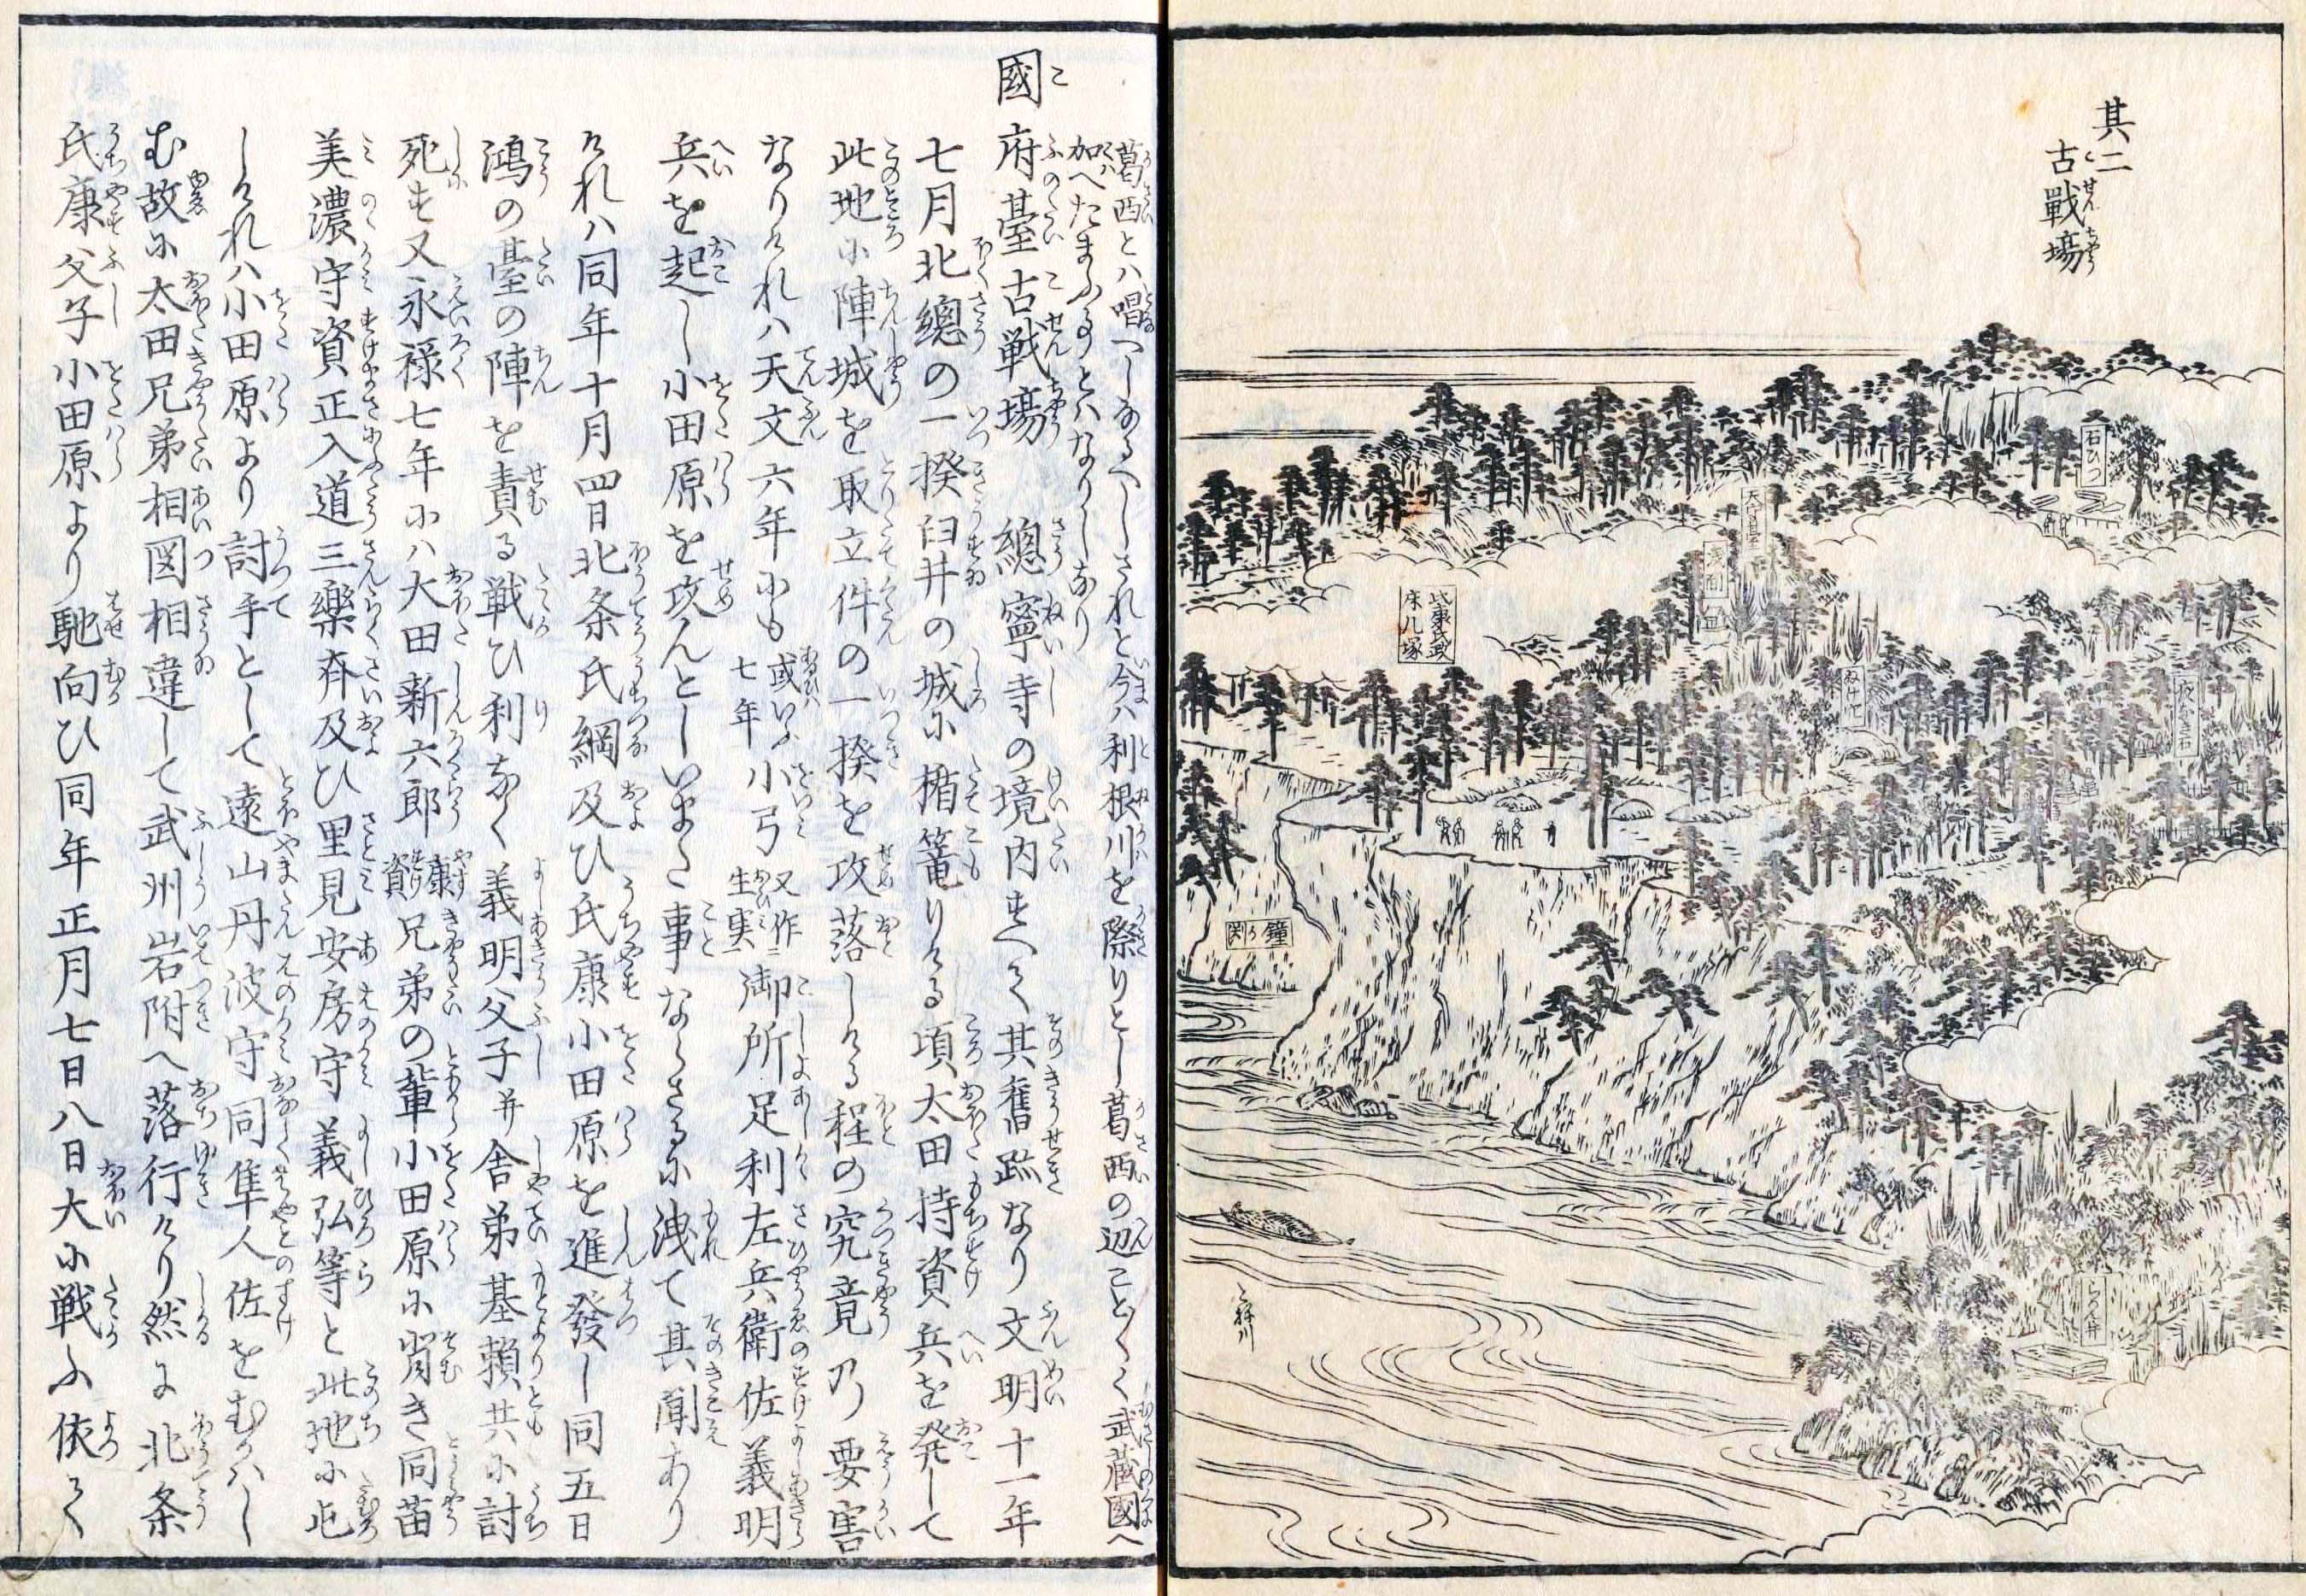 其二
古戰場
石ひつ
天守臺
床几塚
ぬけ穴
夜啼石
鐘か淵
らかん井
利根川
葛西とハ唱へしなるへしされと今ハ利根川を際りとし葛西の辺こと〱く武蔵國へ
加へたまふ事とハなりしなり
國府臺古戦場 總寧寺の境内すへて其舊跡なり文明十一年
七月北總の一揆臼井の城に楯篭りける頃太田持資兵を発して
此地に陣城を取立件の一揆を攻落しける程の究竟乃要害
なりけれハ天文六年にも或ハいふ七年小弓又作生実御所足利左兵衛佐義明
兵を起し小田原を攻んとしいまた事ならさるに洩て其聞あり
けれハ同年十月四日北条氏綱及ひ氏康小田原を進發し同五日
鴻の臺の陣を責る戦ひ利なく義明父子并舎弟基頼共に討
死す又永禄七年にハ大田新六郎康資兄弟の輩小田原に背き同苗
美濃守資正入道三樂斉及ひ里見安房守義弘等と此地に屯
しけれハ小田原より討手として遠山丹波守同隼人佐をむかハし
む故に太田兄弟相図相違して武州岩附へ落行けり然に北条
氏康父子小田原より馳向ひ同年正月七日八日大に戦ふ依て